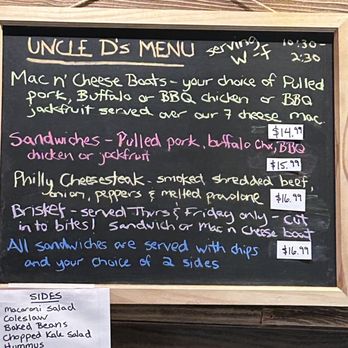 UNCLE D's MENU serving 10:30-
W-F 2:30
Mac n' Cheese Boats - your choice of Pulled
pork, Buffalo or BBQ chicken or BBQ
jackfruit served over our 7 cheese mac.
$14.99
Sandwiches - Pulled pork, buffalo chx, BBQ
chicken or jackfruit
$15.99
Philly Cheesesteak - smoked shredded beef,
onion, peppers & melted provolone $16.99
Brisket - served Thurs & Friday only - cut
into bites! Sandwich or Mac n cheese boat
All sandwiches are served with chips $16.99
and your choice of 2 sides
SIDES
macaroni salad
Coleslaw
Baked Beans
Chopped Kale Salad
Hummus